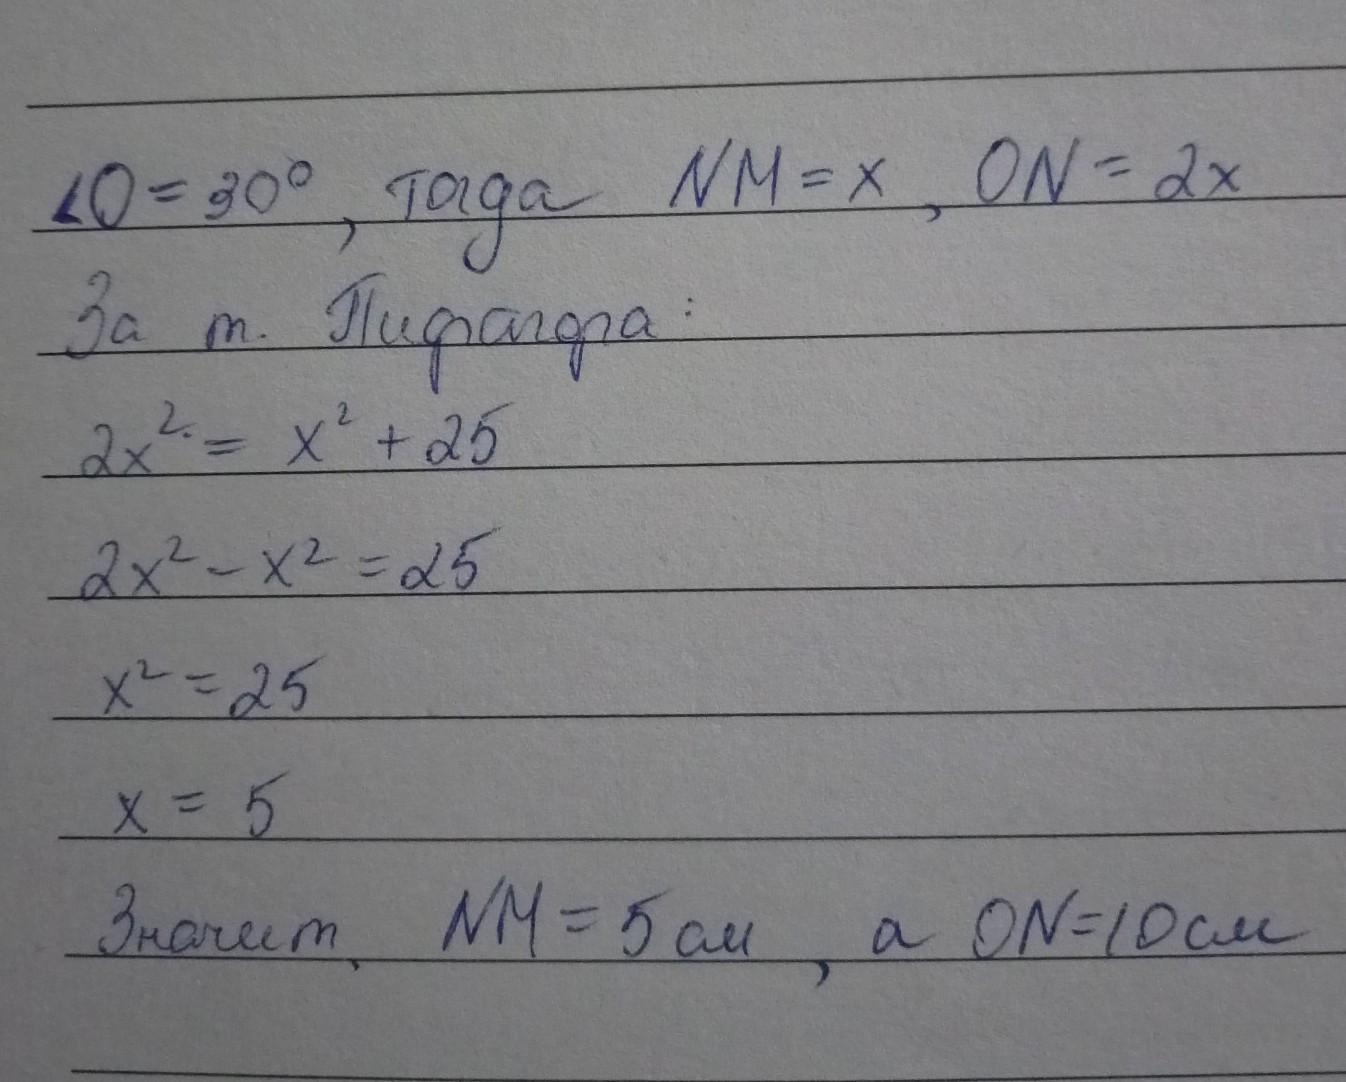 ∠O = 30°, тогда NM = x, ON = 2x
За т. Пифагора:
2x² = x² + 25
2x² - x² = 25
x² = 25
x = 5
Значит, NM = 5 см, а ON = 10 см